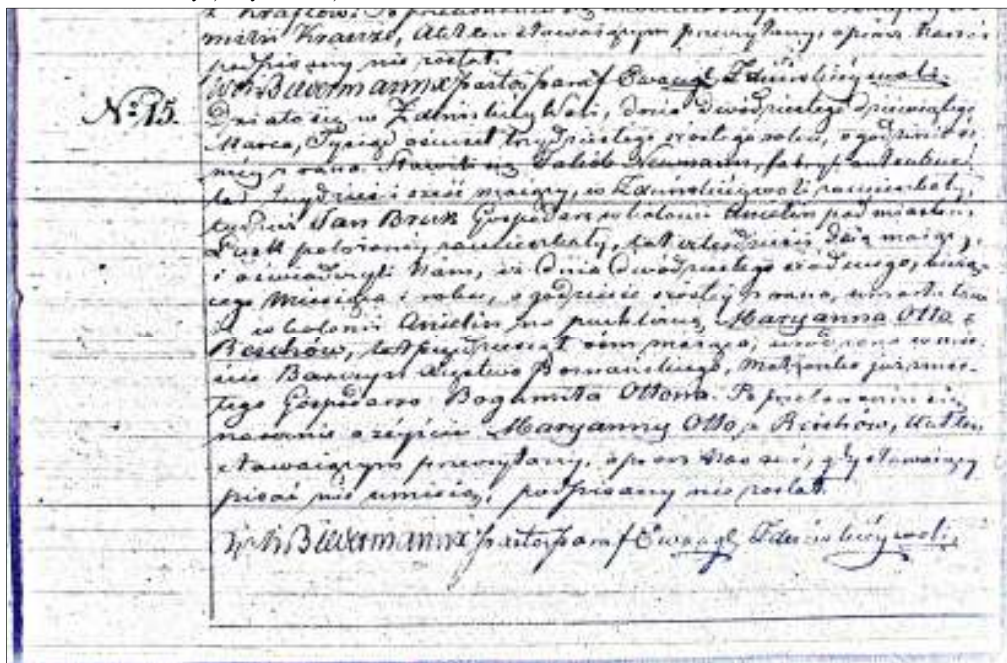 z Kraftów. Po przekonaniu się
mierci Krauze, Akt ten stawaiącym przeczytany, oprocz Nas
podpisany nie został.
Biedermann Pastor paraf Ewangl. Zduńskiéy woli
№ 15. Działo się w Zduńskiéy Woli, dnia dwódziestego dziewiątego
Marca, Tysiąc ośmset trzydziestego szóstego roku, o godzinie
méy z rana. Stawili się Jakób Neumann, fabrykant
lat trzydzieści sześć maiący, w Zduńskiéywoli zamieszkały,
tudzież Jan Bruk Gospodarz w kolonii Anielin pod miastem,
położonéy zamieszkały, lat czterdzieści dwa maiący,
i oświadczyli Nam, iż dnia dwódziestego siódmego, bieżą-
cego Miesiąca i roku, o godzinie szóstéy z rana, umarła
w kolonii Anielin Maryanna Otto z
Reschów, lat pięćdziesiąt ośm maiąca, urodzona w mie-
ście Xięstwa Poznańskiego, Małżonka już zmar-
łego Gospodarza Bogumiła Ottona. Po przekonaniu się
naocznie o zéyściu Maryanny Otto, z Reschów, Akt ten
stawaiącym przeczytany, oprocz Nas zaś, gdy stawaiący
pisać nie umieią, podpisany nie został.
Biedermann Pastor paraf Ewangl. Zduńskiéy woli